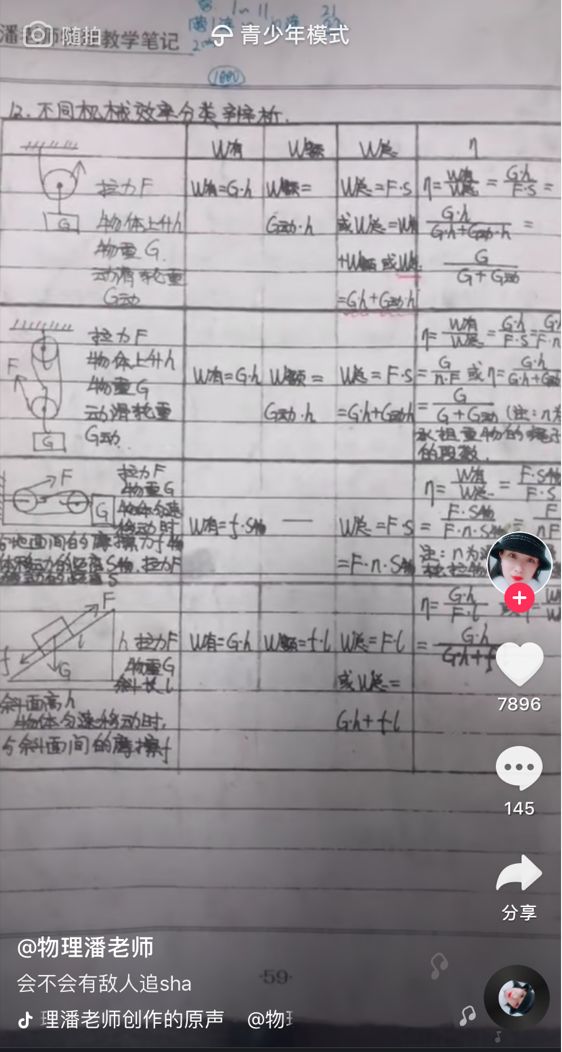 随拍
青少年模式
教学笔记
12.不同机械效率分类辨析.
W有 W额 W总 η
拉力F W有=G·h W额= W总=F·S η=W有/W总=G·h/F·S=
G 物体上升h G动·h 或W总=W有 G·h/G·h+G动·h =
物重G +W额 或W总 G/G+G动
动滑轮重 =G·h+G动·h
G动
拉力F η=W有/W总=G·h/F·S
F 物体上升h W有=G·h W额= W总=F·S =G/n·F 或η=G·h/G·h+G动
物重G
动滑轮重 G动·h =G·h+G动h =G/G+G动 (注:n为
G G动. 承担重物的绳子
的段数.
拉力F
F 物重G η=W有/W总=F·S
G 物体匀速
移动时 W有=f·S物 — W总=F·S =F·n·S物 nF
与地面间的摩擦力f
=F·n·S物 注:n为
F η=G·h/F·l
h 拉力F W有=G·h W额=f·l W总=F·l =G·h
f G 物重G
斜长l 或W总=
斜面高h G·h+f·l
物体匀速移动时,
与斜面间的摩擦f
7896
145
分享
@物理潘老师
会不会有敌人追sha
·59·
理潘老师创作的原声 @物